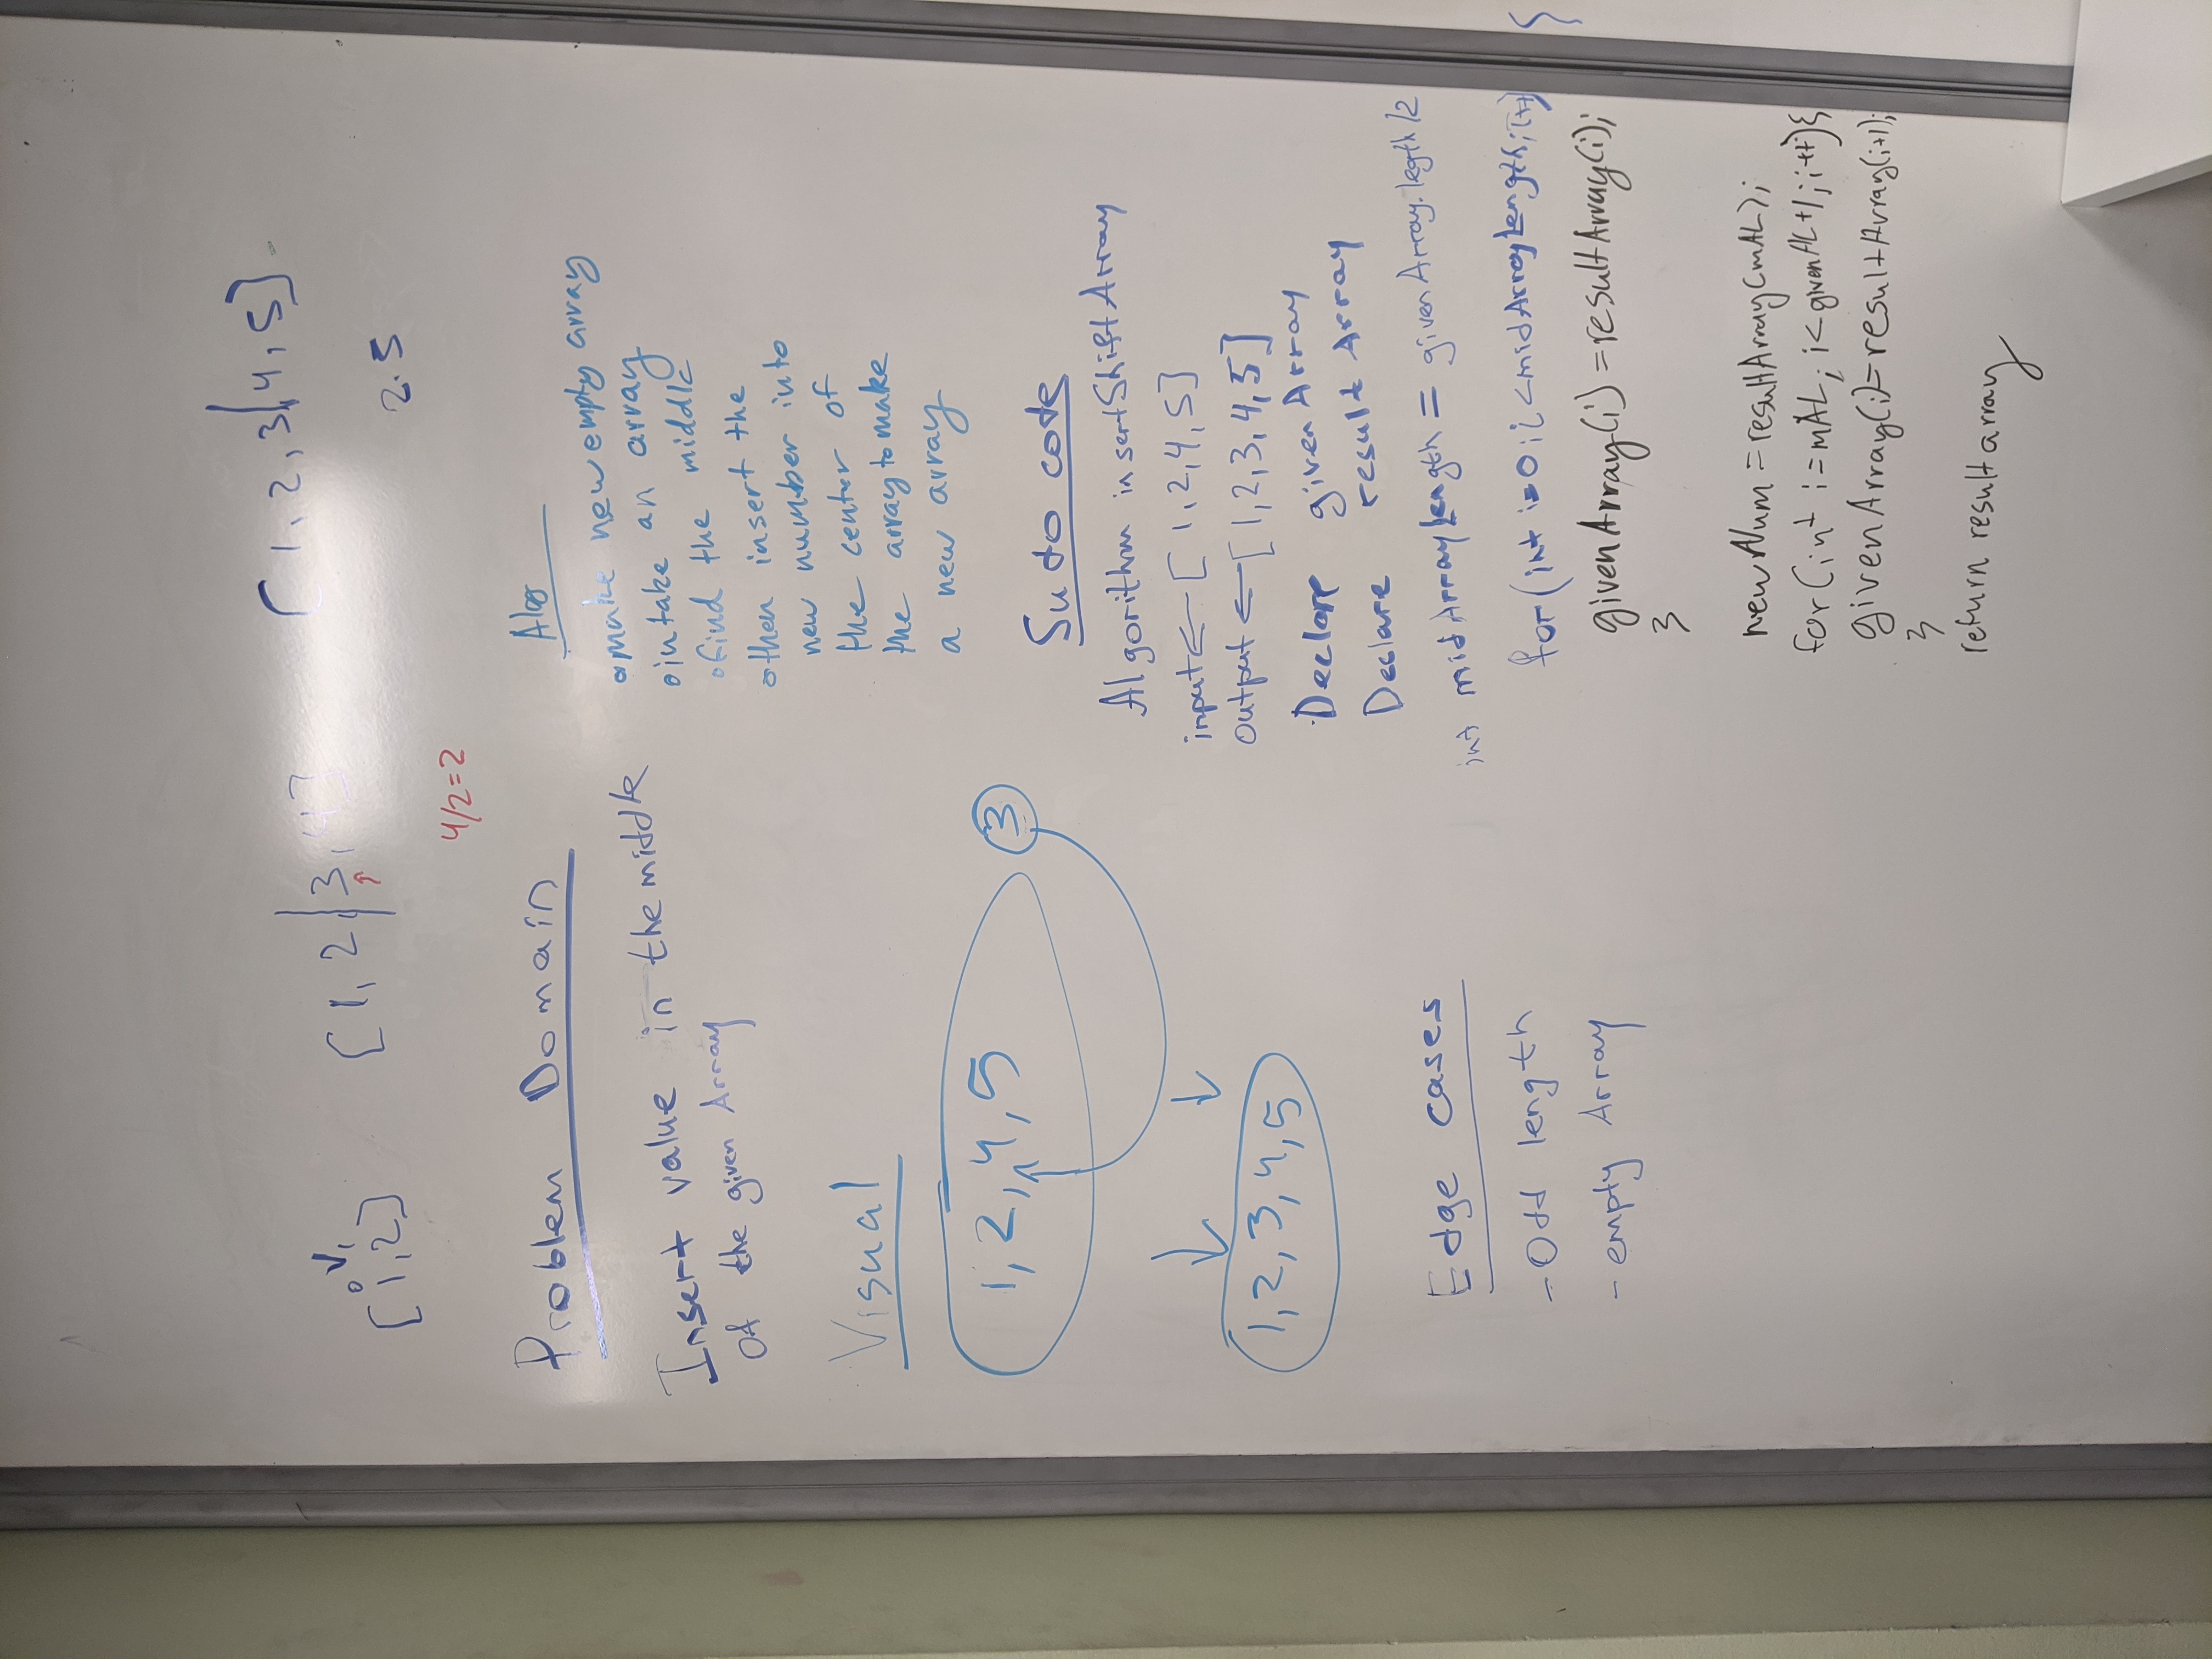 [1,2]
[1,2,|3,4]
4/2=2
[1,2,3|4,5]
2.5
Problem Domain
Insert value in the middle
of the given Array
Visual
1,2,4,5
3
1,2,3,4,5
Edge cases
-Odd length
-empty Array
Algo
make new empty array
intake an array
find the middle
then insert the
new number into
the center of
the array to make
a new array
Sudo code
Algorithm insertShiftArray
input ← [1,2,4,5]
output ← [1,2,3,4,5]
Declare givenArray
Declare resultArray
int midArrayLength = givenArray.legth/2
for(int i=0; i<midArrayLength; i++) {
givenArray(i)=resultArray(i);
}
newNum=resultArray(mAL);
for(int i=mAL; i<givenAL+1; i++){
givenArray(i)=resultArray(i+1);
}
return result array